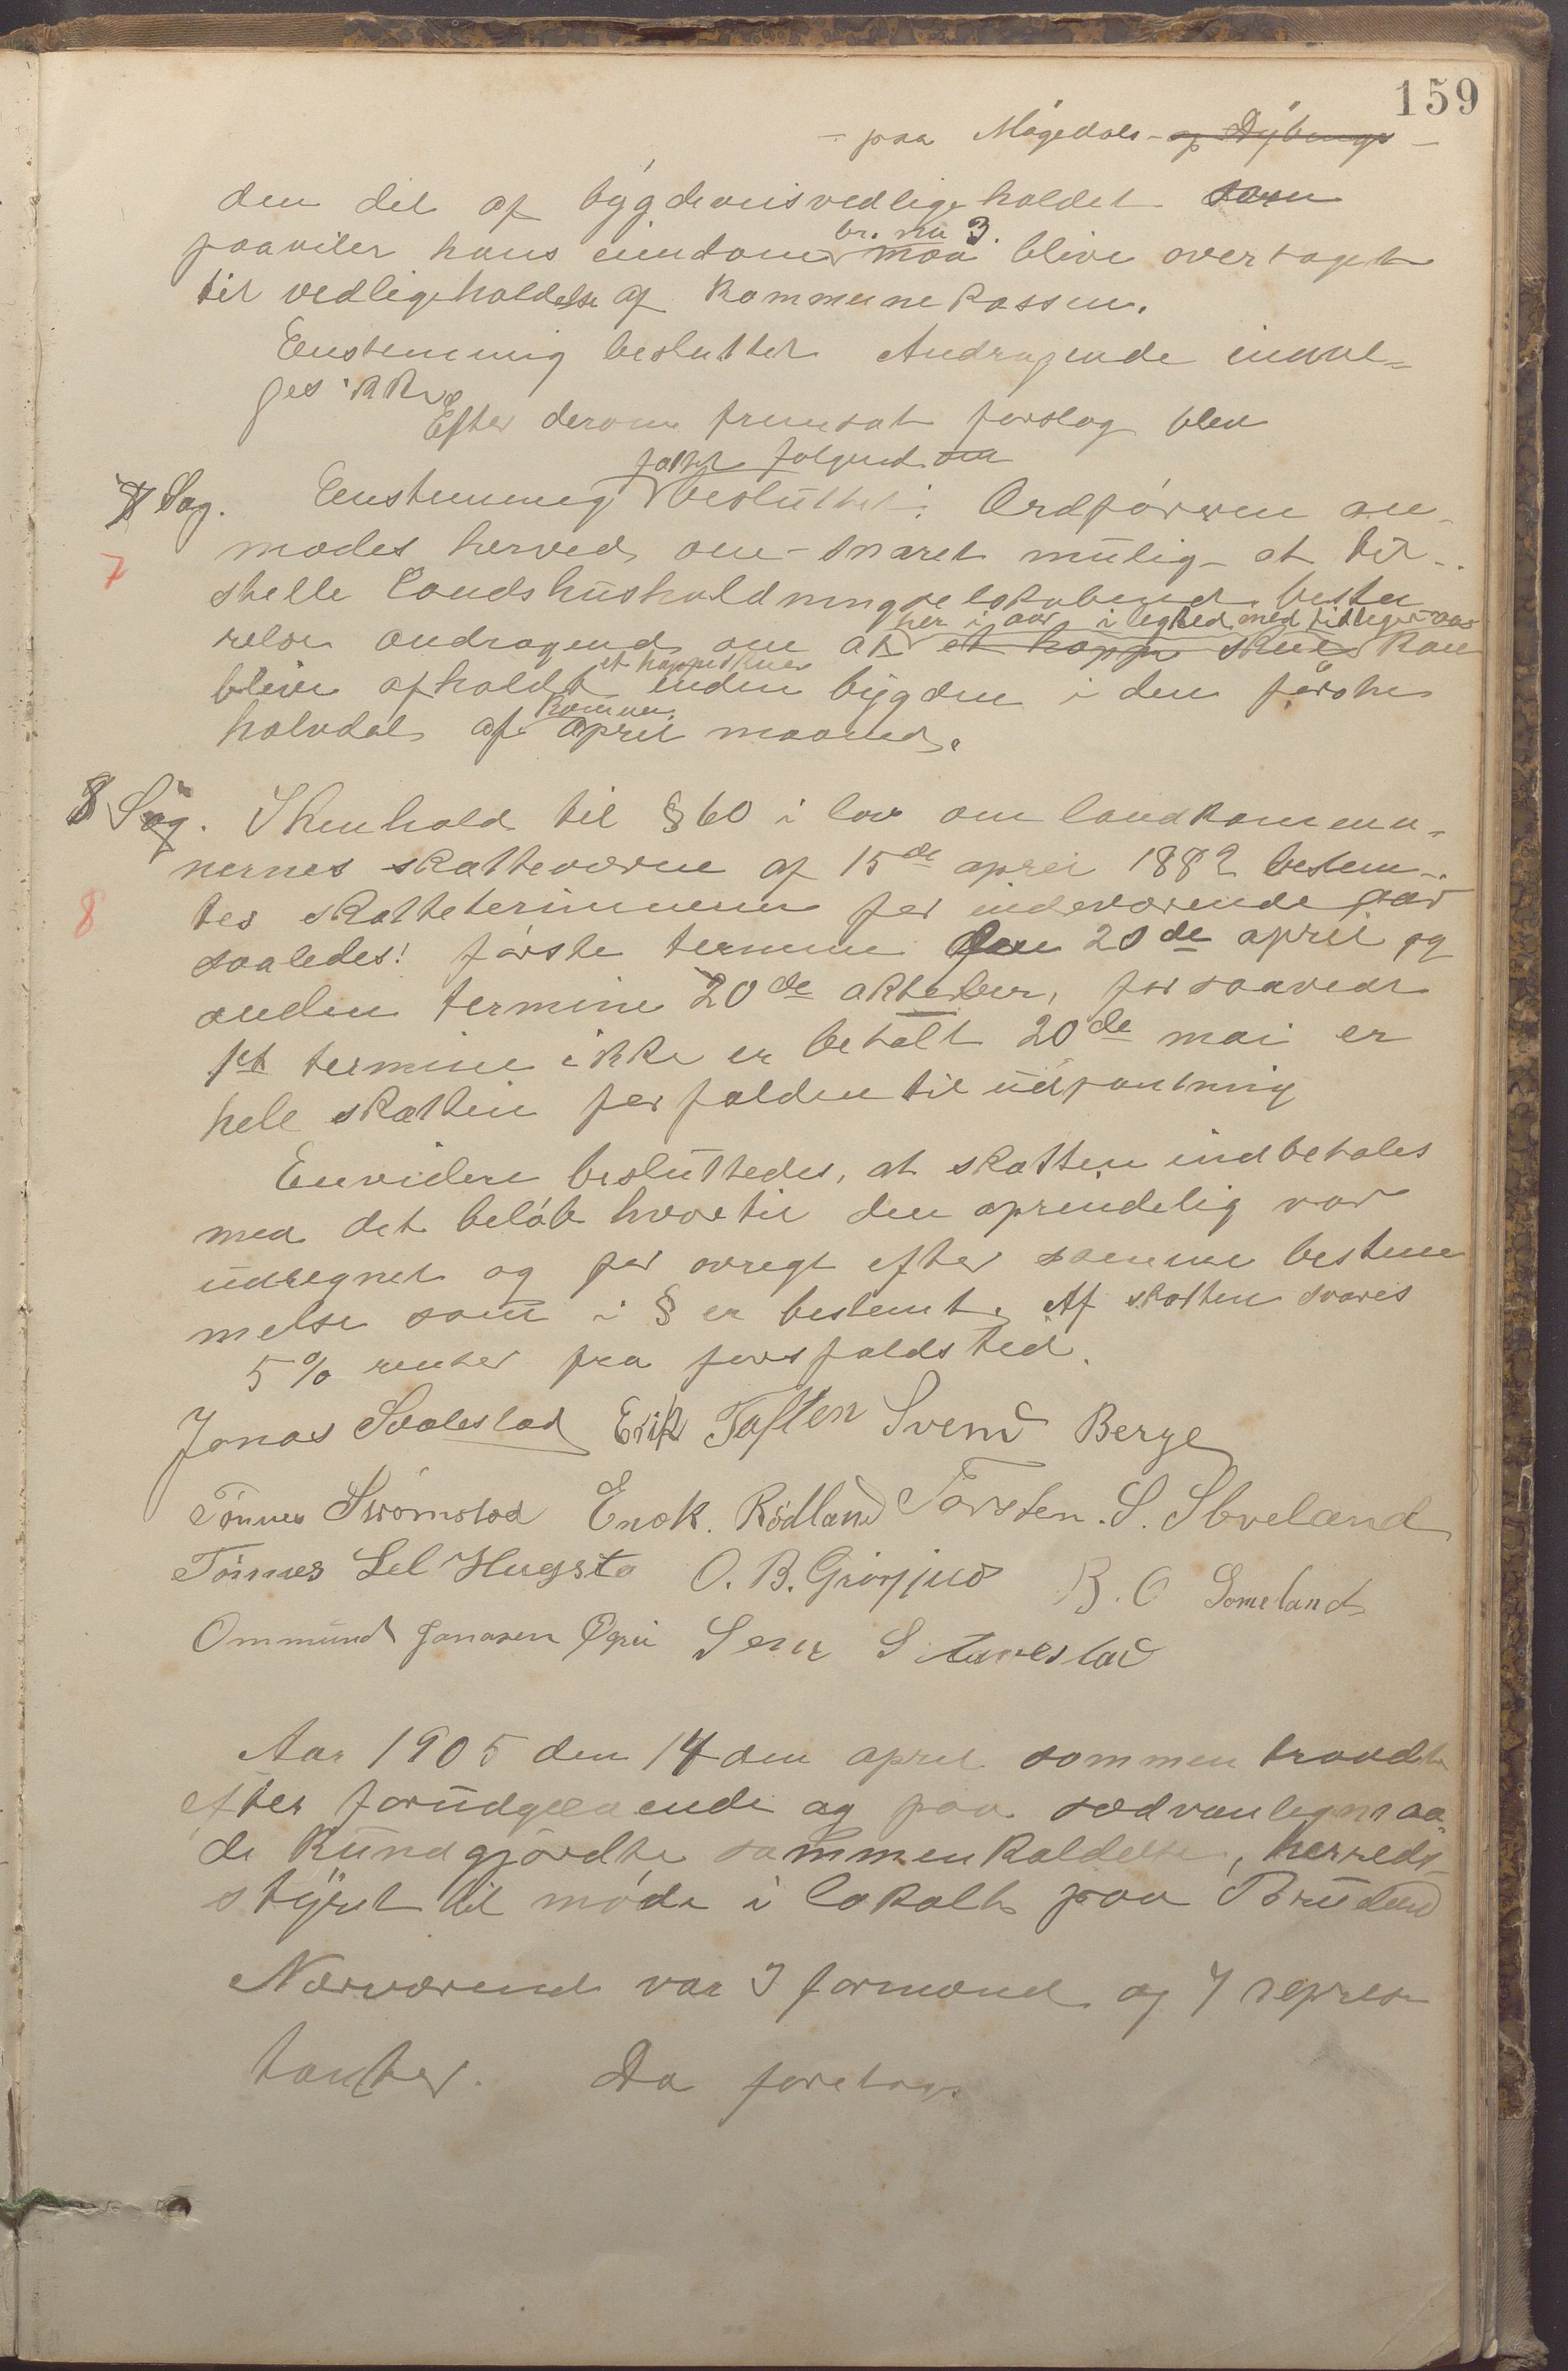 159
- paa Møgedals- og Dybings -
den del af bygdeveisvedligeholdet som
paaviler hans eiendom br. no 3. maa blive overtaget
til vedligeholdelse af Kommunekassen.
Eenstemmig besluttet Andragende indvil-
ges ikke
Efter derom fremsat forslag blev
fattet følgende
7 Sag. Eenstemmig besluttet: Ordføreren an-
7
modes herved om - snarest mulig - at til-
stelle Landshusholdningsselskabets besty
her i aar i lighed med tidligere aar
relse andragende om at et hoppe skue kan
et hoppeskue
blive afholdt inden bygden i den første
kommen.
halvdel af april maaned.
8 Sag. I henhold til § 60 i lov om landkommu-
nernes skattevæsen af 15de april 1882 bestem-
8
tes skatteterminerne for indeværende aar
saaledes: første termine den 20de april og
anden termine 20de oktober, forsaavidt
1st termine ikke er betalt 20de mai er
hele skatten forfalden til udpantning
Envidere besluttedes, at skatten indbetales
med det beløb hvortil den oprindelig var
udregnet og for øvrigt efter samme bestem
melse som i § er bestemt. Af skatten svares
5 % renter fra forfaldstid.
Jonas Svalestad Erik Taften Svend Berge
Tønnes Strømstad Enok. Rødland Torsten. S. Stveland
Tønnes Lel Hugsta O. B. B. O Someland
Ommund Jonasen Sem S Tavestad
Aar 1905 den 14den april sammen traadte
efter forudgaaende og paa sædvanlig maa
de kundgjordte sammenkaldelse, herreds-
styret til møde i lokalet paa Bruland
Nærværende var 3 formænd og 7 repræsen
tanter. Da foretogs